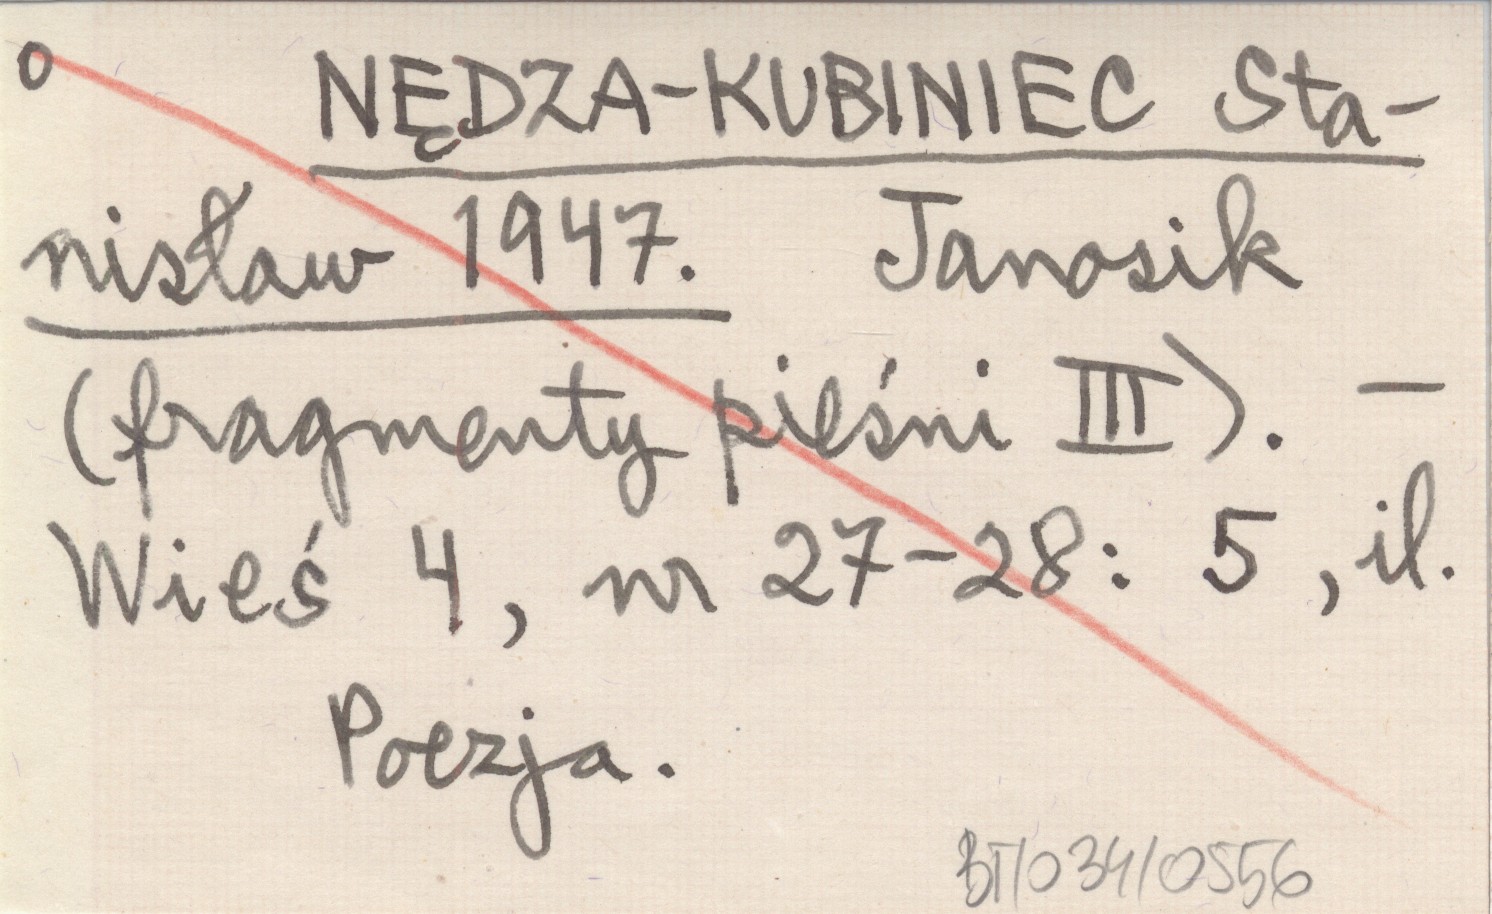 o NĘDZA-KUBINIEC Sta-
nisław 1947. Janosik
(fragmenty pieśni III). –
Wieś 4, nr 27-28: 5, il.
Poezja.
BT/034/0556